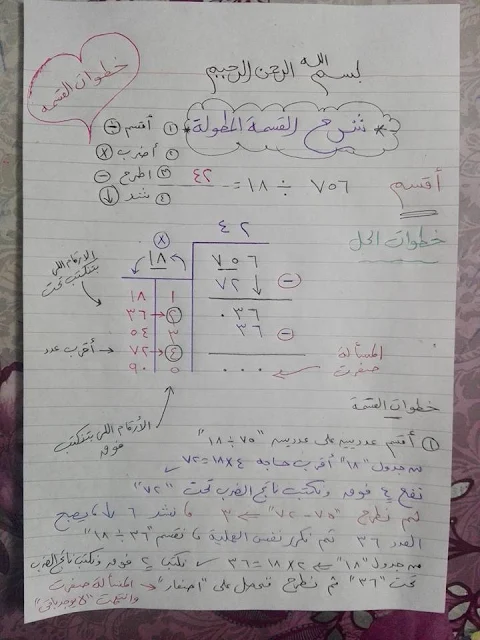 بسم الله الرحمن الرحيم
خطوات القسمه
* شرح القسمة المطولة *
١ أقسم ÷
٢ أضرب ×
٣ اطرح −
٤ شد ↓
أقسم
٧٥٦ ÷ ١٨ = ٤٢
خطوات الحل
٤٢
٧٥٦
١٨
×
٧٢ ↓ −
٠٣٦
٣٦ −
٠٠٠
المسألة
صفرت
١ ١٨
٢ ٣٦
٣ ٥٤
٤ ٧٢
٥ ٩٠
الأرقام اللي
بتتكتب تحت
أقرب عدد
الأرقام اللي بتتكتب
فوق
خطوات القسمة
١ أقسم عددين على عددين "٧٥ ÷ ١٨"
من جدول "١٨" أقرب حاجه ٤ × ١٨ = ٧٢
نضع ٤ فوق ونكتب ناتج الضرب تحت "٧٢"
ثم نطرح "٧٥ - ٧٢" ⇐ ٣ ثم نشد ٦ ↓ يصبح
العدد ٣٦ ثم نكرر نفس العملية ثم نقسم "٣٦ ÷ ١٨"
من جدول "١٨" ⇐ ٢ × ١٨ = ٣٦ ✓ نكتب ٢ فوق ونكتب ناتج الضرب
تحت "٣٦" ثم نطرح فنحصل على "اصفار" ← المسألة صفرت
وانتهت "لا يوجد باقي"